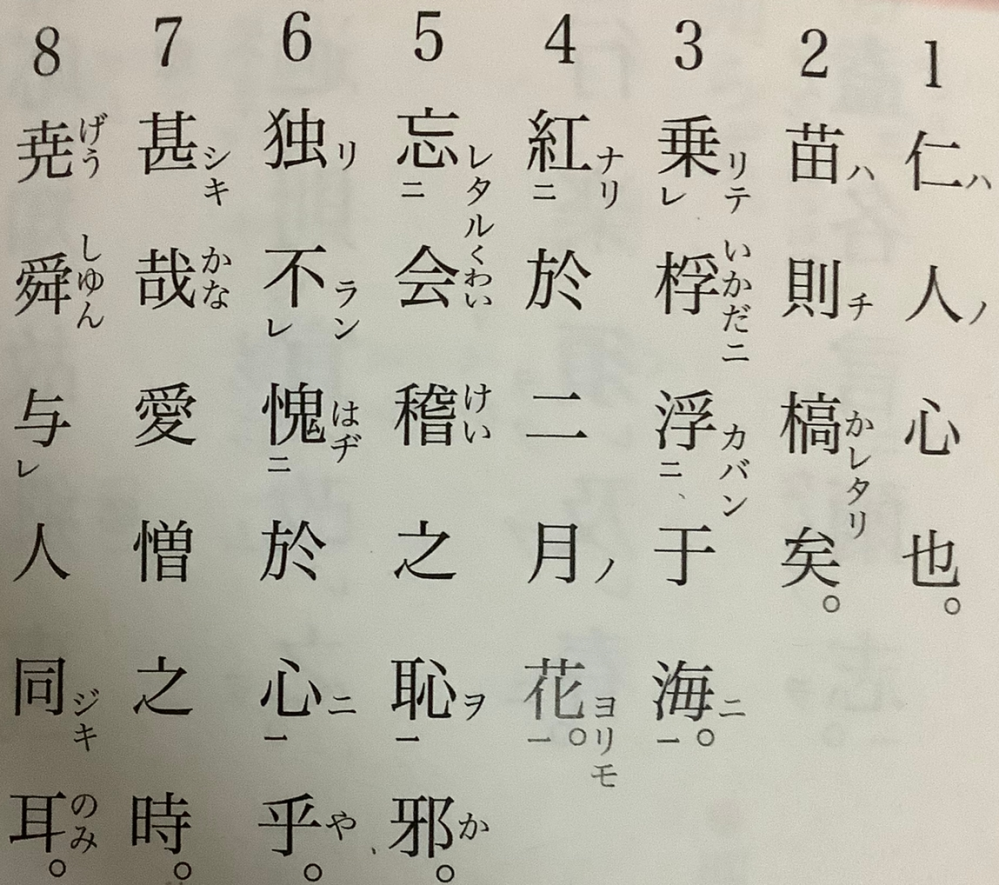 1 仁ハ人ノ心也。
2 苗ハ則チ槁かレタリ矣。
3 乗リテレ桴いかだニ浮カバンニ于海ニ一。
4 紅ナリニ於二月ノ花ヨリモ一。
5 忘レタルニ会くわい稽けい之恥ヲ一邪か。
6 独リ不ランレ愧はヂニ於心ニ一乎や。
7 甚シキ哉かな愛憎之時。
8 尭げう舜しゆん与レ人同ジキ耳のみ。